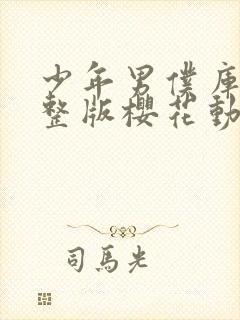 少年男僕庫
整版櫻花動
司馬光